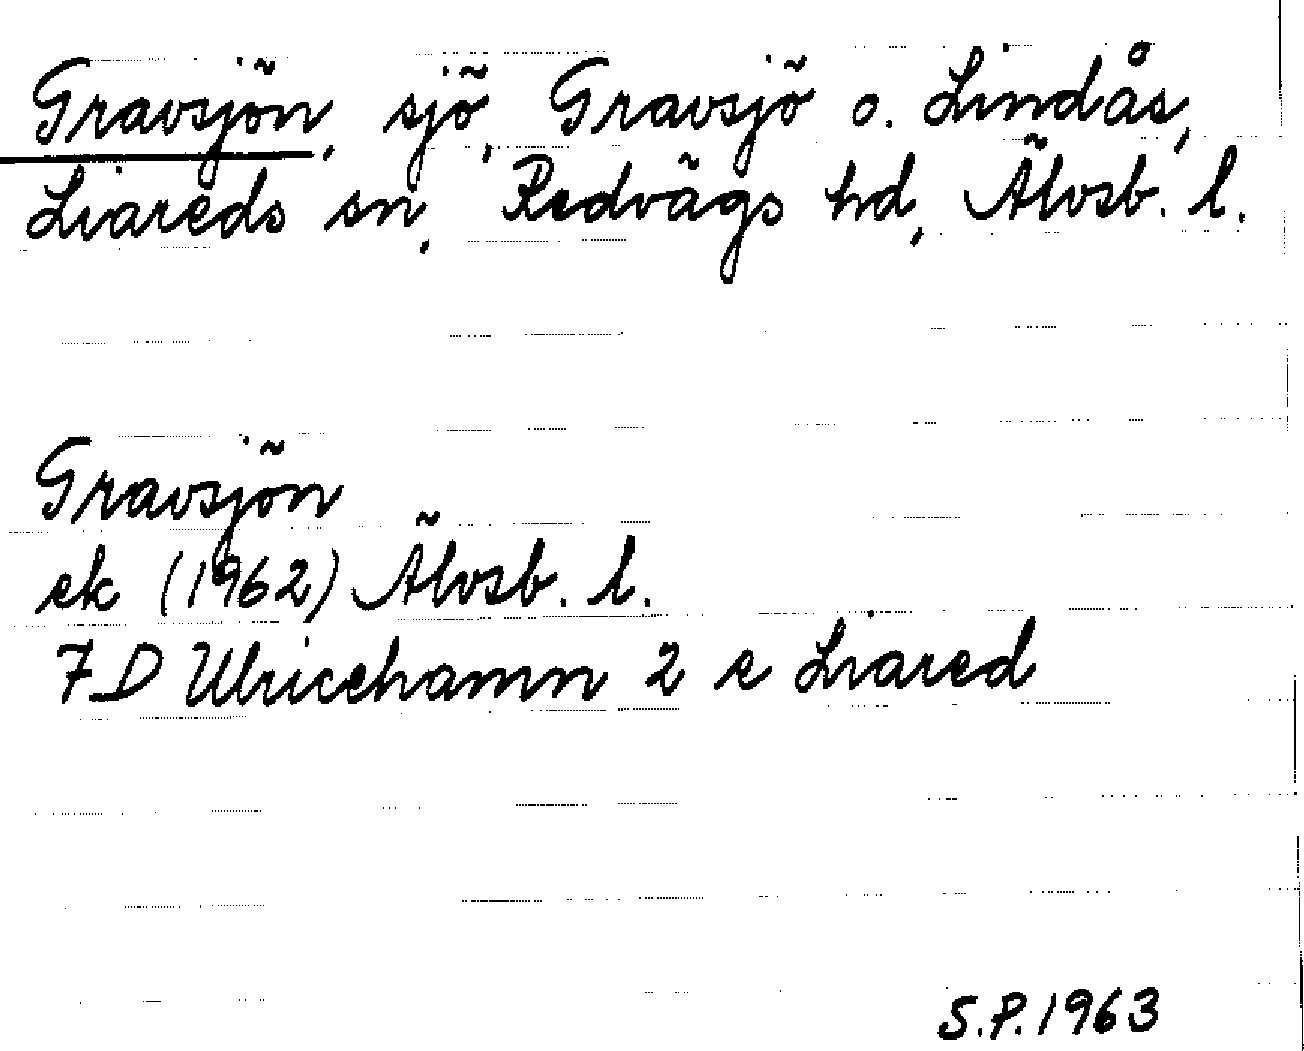 Gravsjön, sjö, Gravsjö o. Lindås,
Liareds sn, Redvägs hd, Älvsb. l.
Gravsjön
ek (1962) Älvsb. l.
7D Ulricehamn 2 e Liared
S.P. 1963